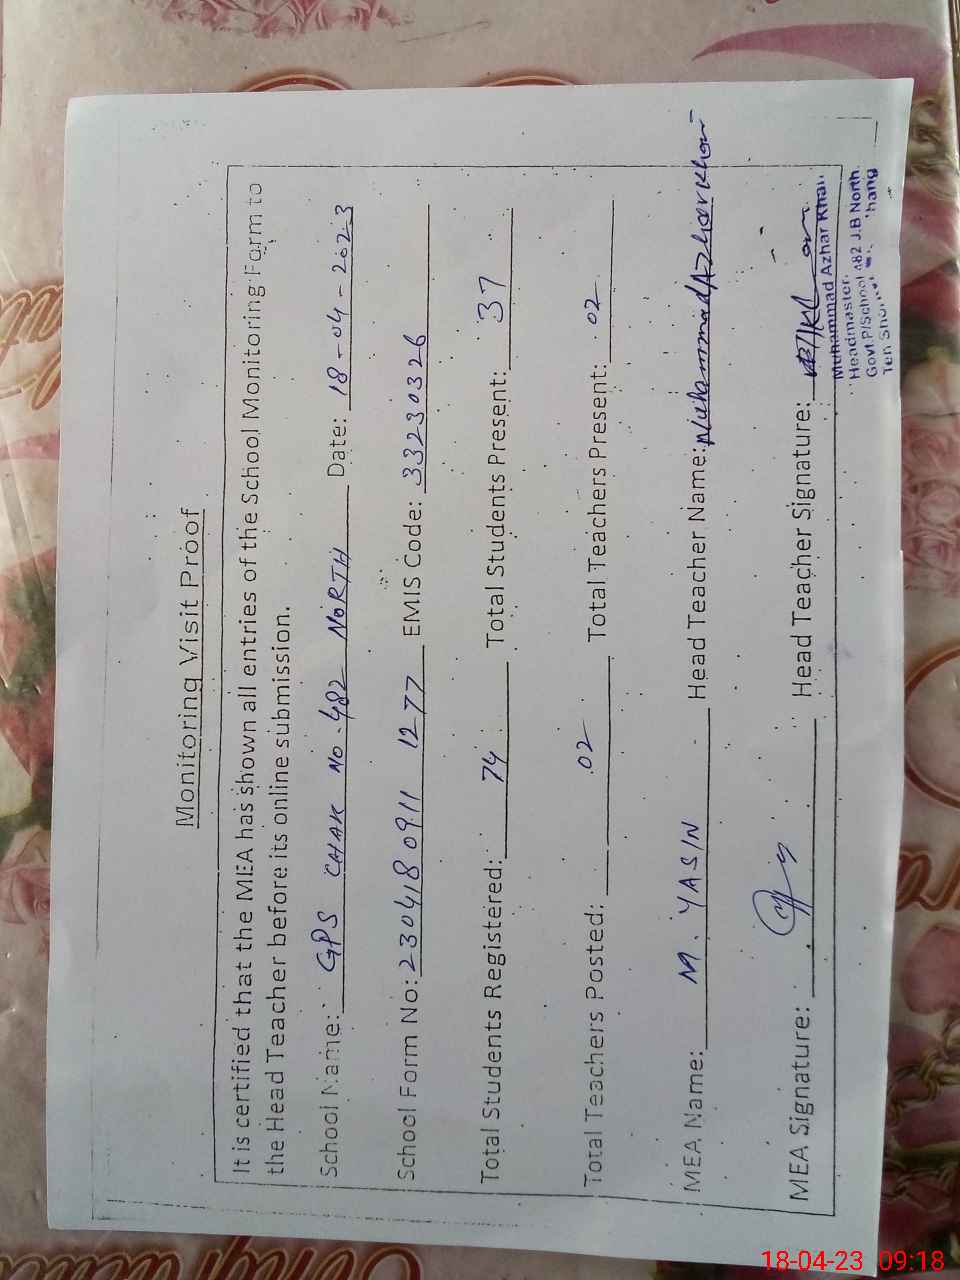 Monitoring Visit Proof
It is certified that the MEA has shown all entries of the School Monitoring Form to
the Head Teacher before its online submission.
School Name: GPS CHAK NO. 482 NORTH Date: 18-04-2023
School Form No: 230418 0911 1277 EMIS Code: 33230326
Total Students Registered: 74 Total Students Present: 37
Total Teachers Posted: 02 Total Teachers Present: 02
MEA Name: M. YASIN Head Teacher Name: Muhammad Azhar Khan
MEA Signature: Head Teacher Signature:
Muhammad Azhar Khan
Headmaster
Govt P/School 482 J.B North
18-04-23 09:18